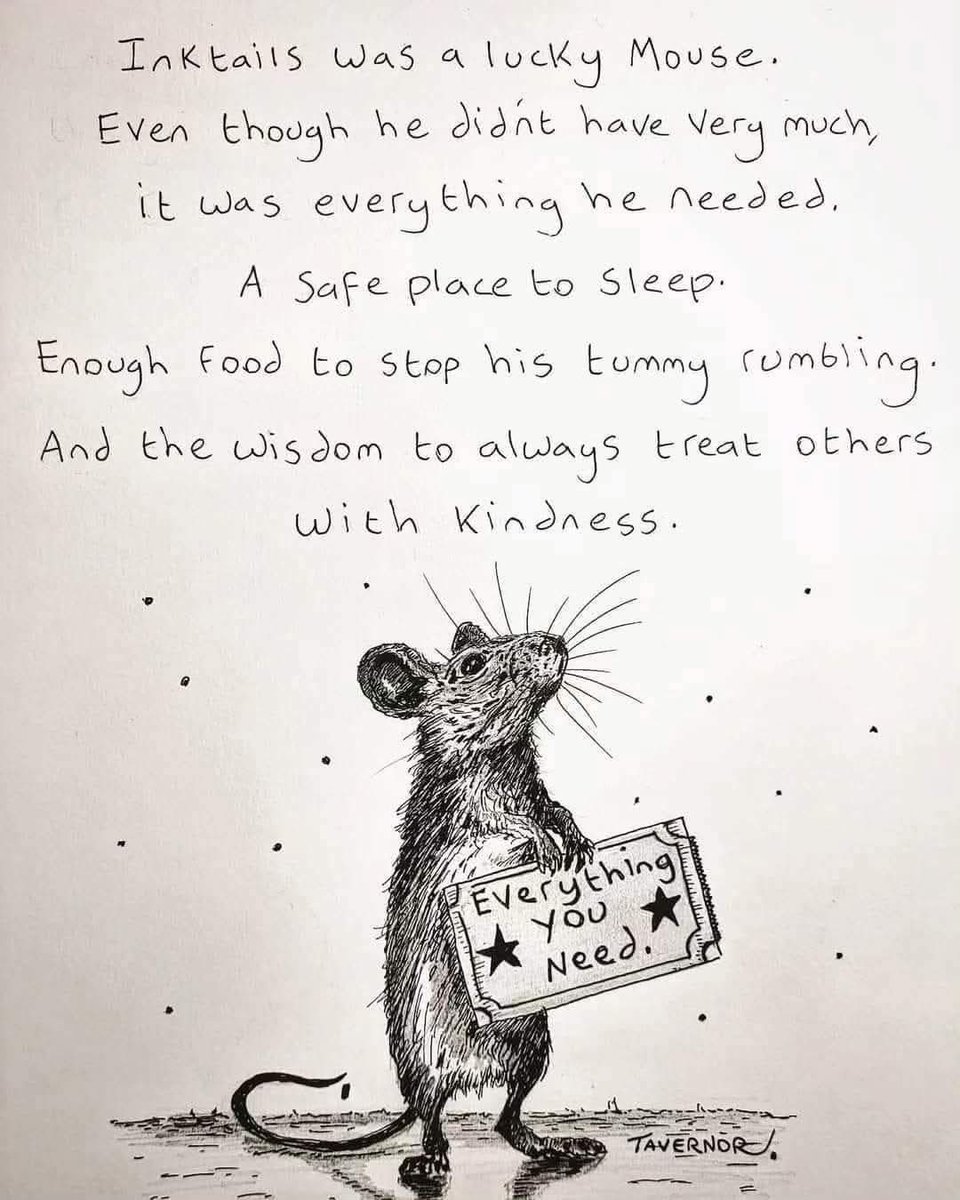 Inktails was a lucky Mouse.
Even though he didn't have very much,
it was everything he needed.
A Safe place to Sleep.
Enough food to stop his tummy rumbling.
And the wisdom to always treat others
with Kindness.
Everything
You
Need.
TAVERNOR.